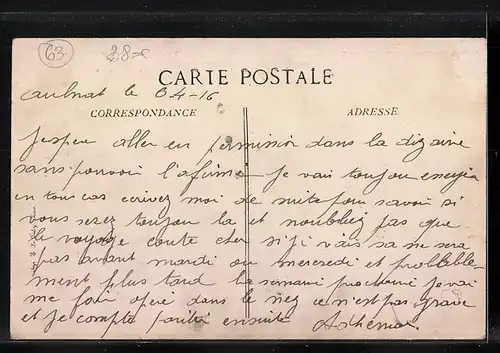 63
28
CARTE POSTALE
aulnat le 6 4-16
CORRESPONDANCE
ADRESSE
J'espère aller en permission dans la dizaine
sans pouvoir l'afirmé je vais toujour essayer
en tous cas ecrivez moi de suite pour savoir si
vous serez toujour la et noubliez pas que
le voyage coute cher si j'i vais sa ne sera
pas avant mardi ou mercredi et probleble-
ment plus tard la semaine prochaine je vai
me fair operé dans le nez ce n'est pas grave
et je compte partir ensuite Adhémar